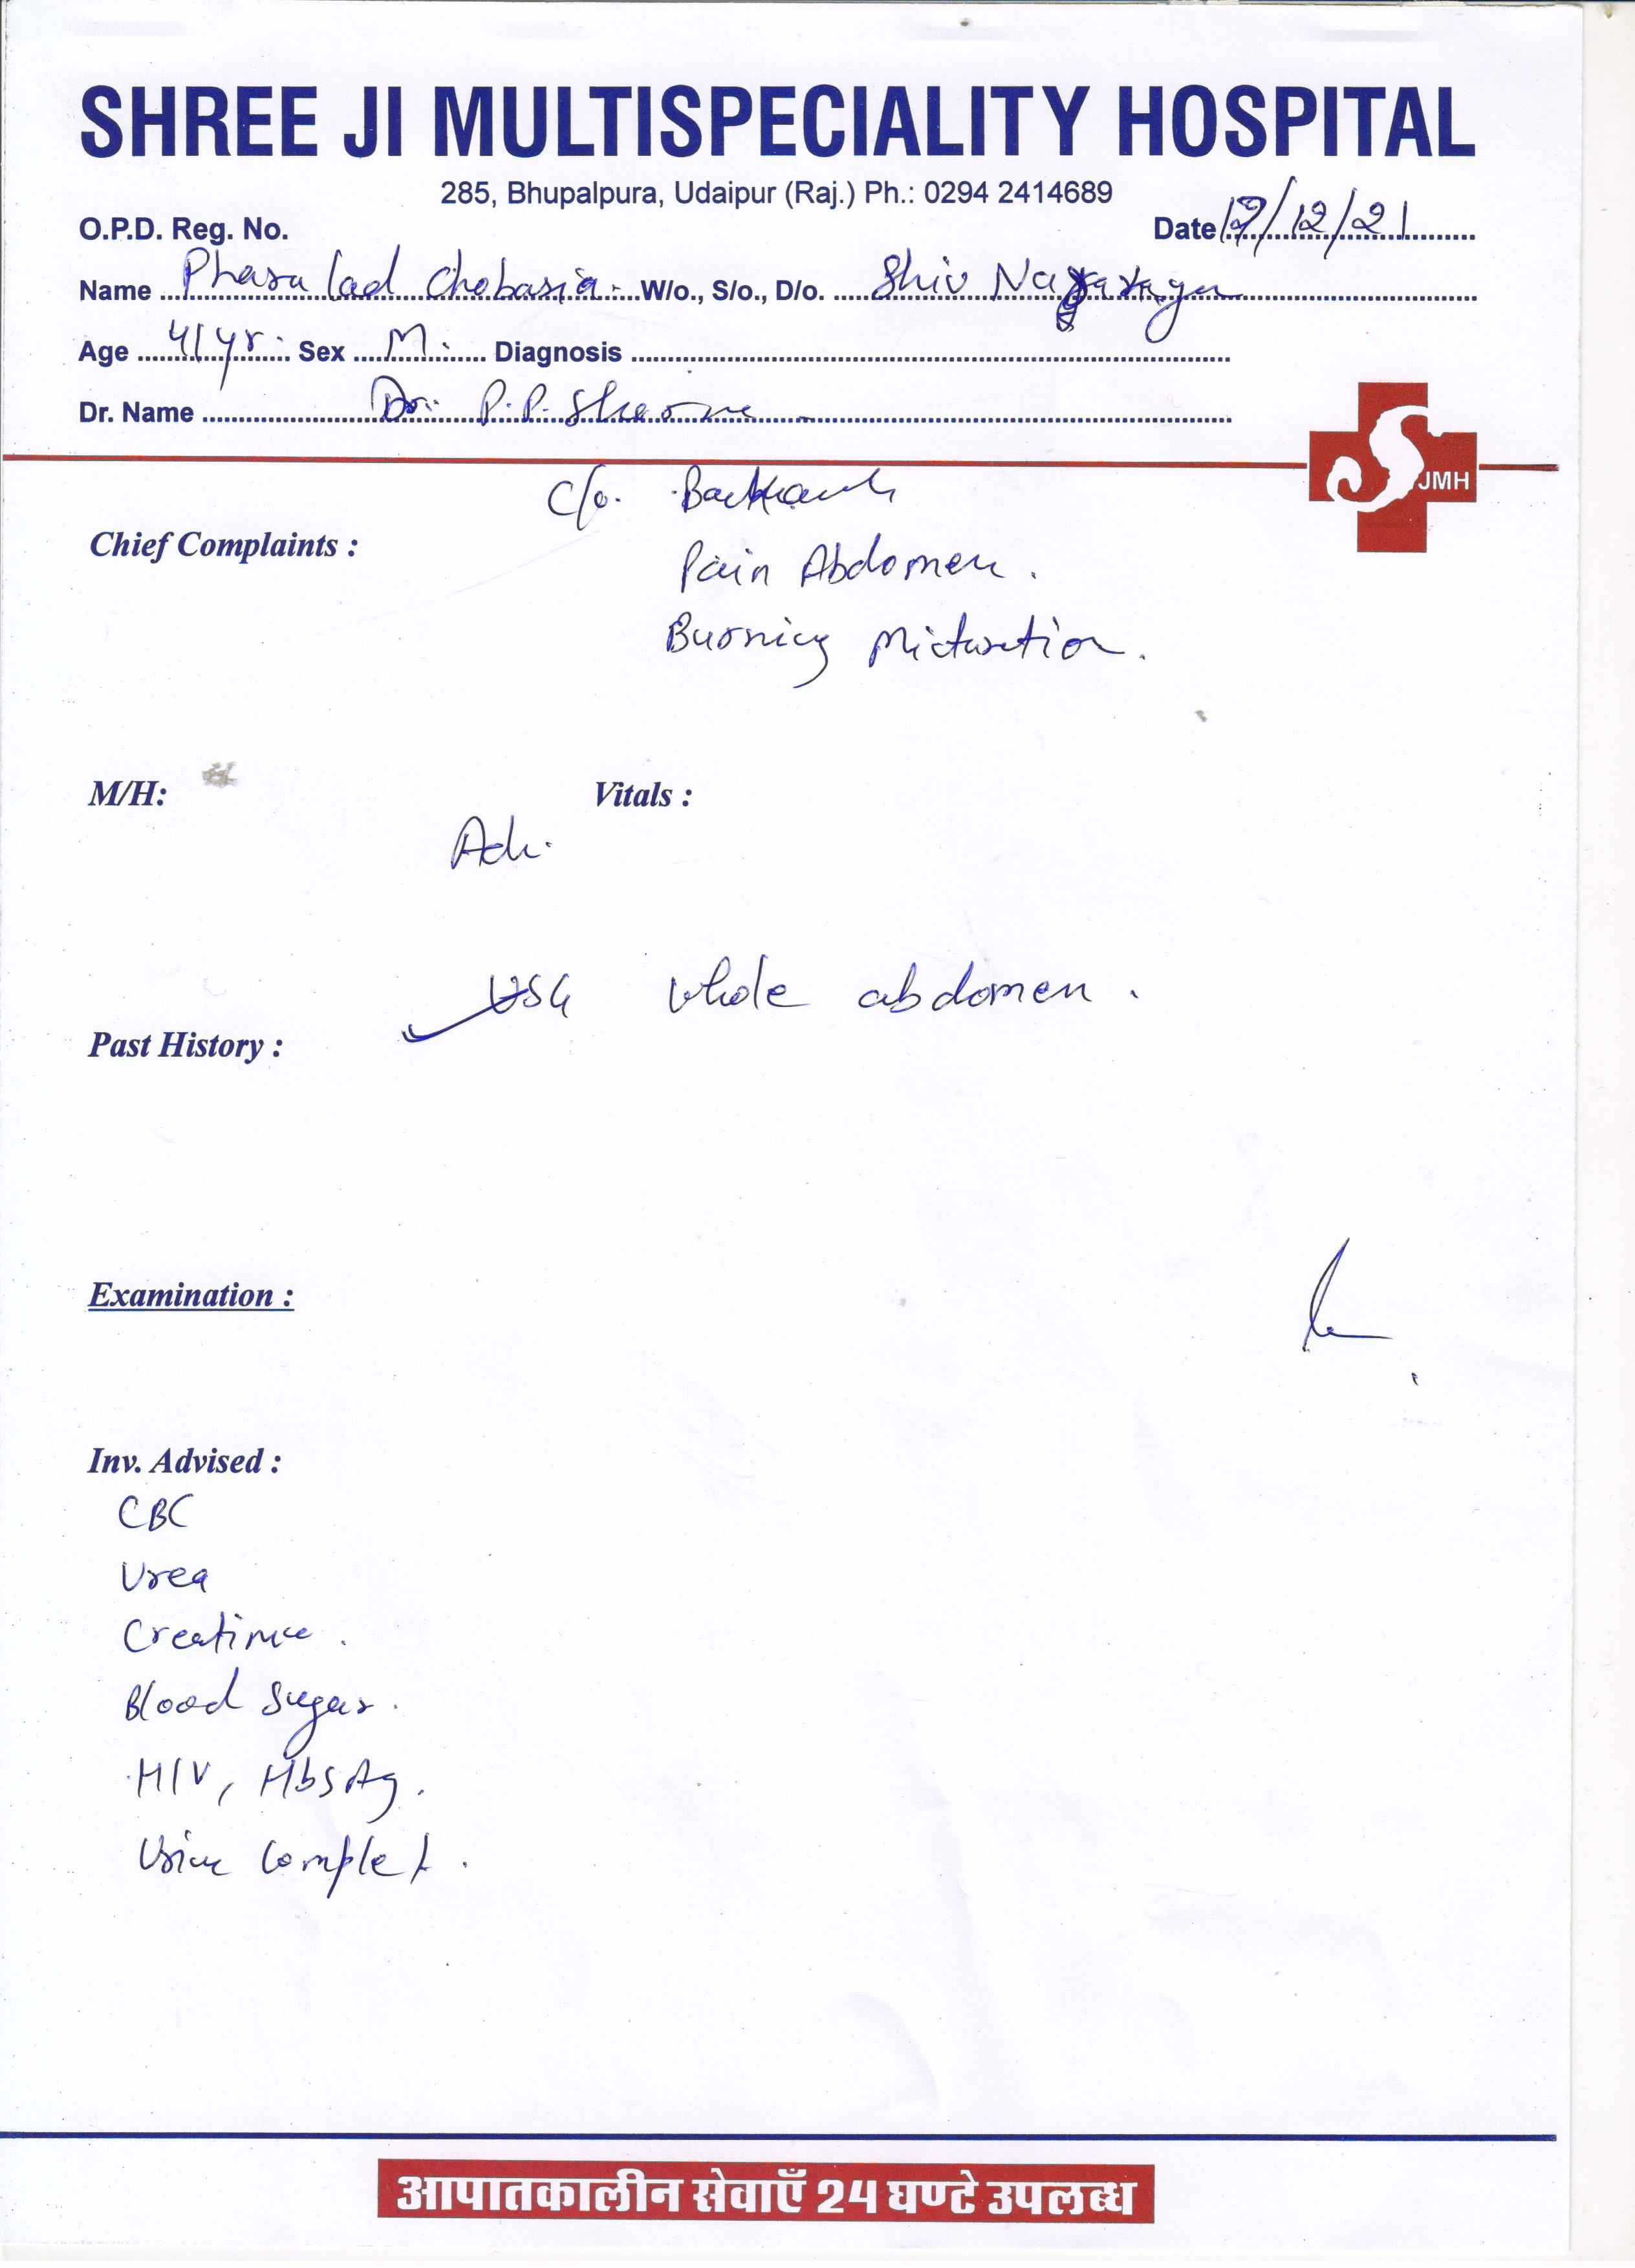 SHREE JI MULTISPECIALITY HOSPITAL
285, Bhupalpura, Udaipur (Raj.) Ph.: 0294 2414689
O.P.D. Reg. No. Date /12/21
Name Phara lad Chobasia W/o., S/o., D/o. Shiv
Age 41 yr. Sex M. Diagnosis
Dr. Name Dr. P.P. Sharma
JMH
C/o.
Chief Complaints :
Pain Abdomen.
Burning Micturation.
M/H: Vitals :
USG whole abdomen.
Past History :
Examination :
Inv. Advised :
CBC
Urea
Creatinine.
Blood Sugar.
HIV, HbsAg.
Urine Complet.
आपातकालीन सेवाएँ 24 घण्टे उपलब्ध